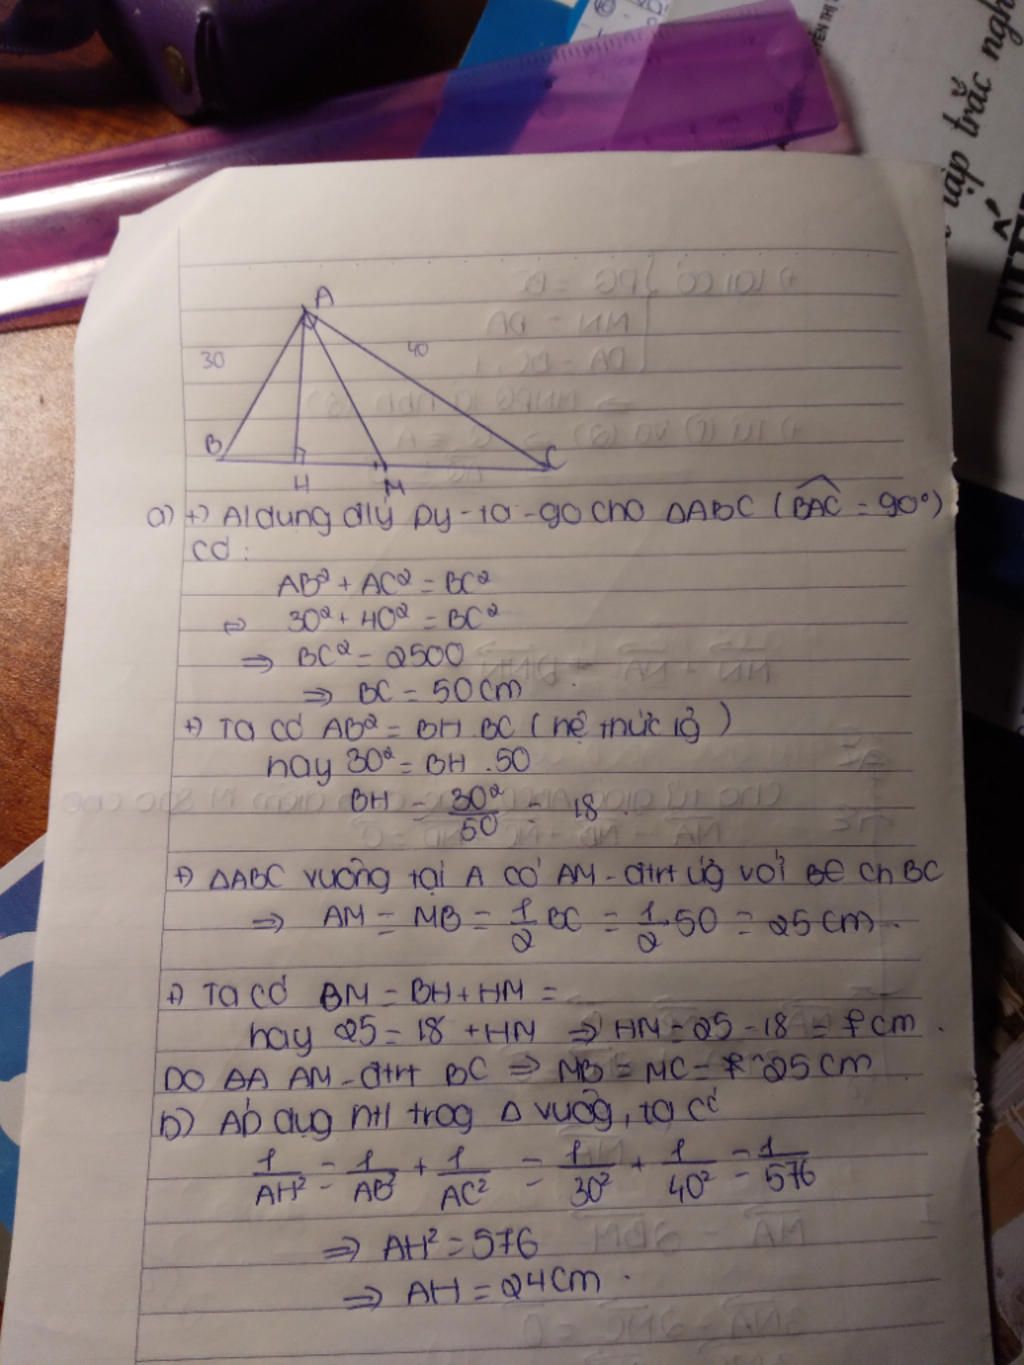 ập trắc ngh
A
30
40
B
H
M
C
a) +) Aldụng đlý Py-ta-go cho ΔABC (BAC = 90°)
có:
AB² + AC² = BC²
⇔ 30² + 40² = BC²
⇒ BC² = 2500
⇒ BC = 50cm
+) Ta có AB² = BH.BC (hệ thức lg)
hay 30² = BH.50
BH = 30²/50 = 18.
+) ΔABC vuông tại A có AM-đtrt ứg với BC ch BC
⇒ AM = MB = 1/2 BC = 1/2.50 = 25cm.
+) Ta có BM = BH + HM =
hay 25 = 18 + HM ⇒ HM = 25 - 18 = 7cm.
Do AM-đtrt BC ⇒ MB = MC = 25cm
b) Áp dụg htl trog Δ vuôg, ta có
1/AH² = 1/AB² + 1/AC² = 1/30² + 1/40² = 1/576
⇒ AH² = 576
⇒ AH = 24cm.